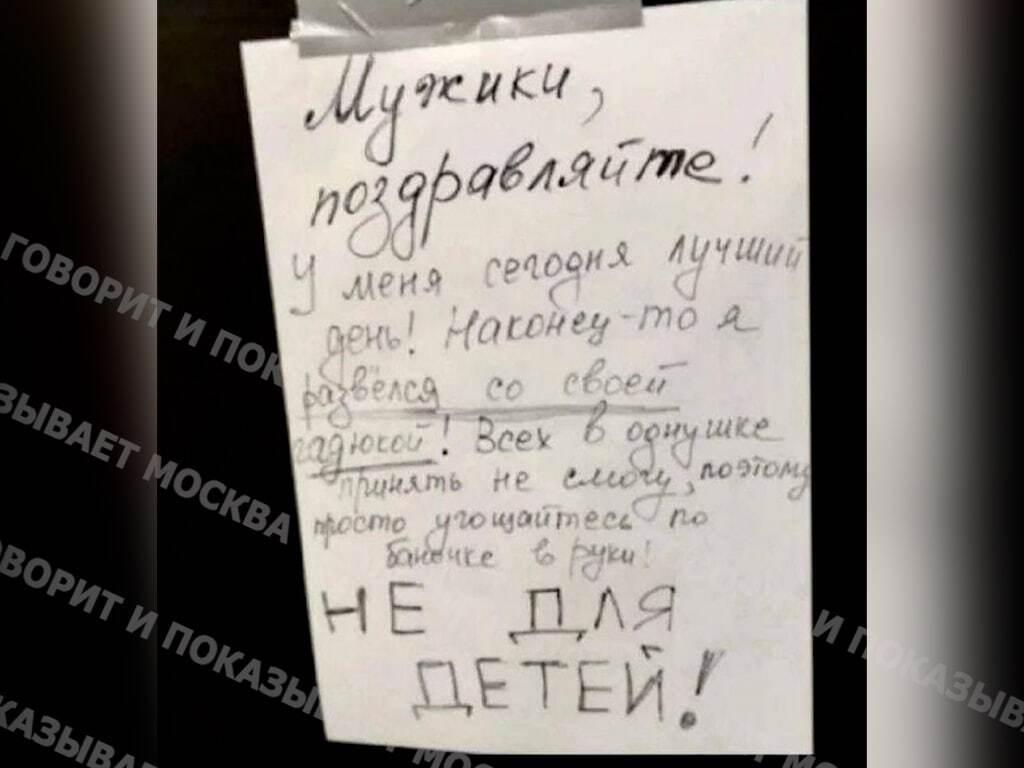 Мужики,
поздравляйте!
У меня сегодня лучший
день! Наконец-то я
развёлся со своей
гадюкой! Всех в однушке
принять не смогу, поэтому
просто угощайтесь по
баночке в руки!
НЕ ДЛЯ
ДЕТЕЙ!
ГОВОРИТ И ПОК
ЗЫВАЕТ МОСКВА
ОВОРИТ И ПОКАЗЫ
КАЗЫВА
МО
И ПОКАЗЫВ